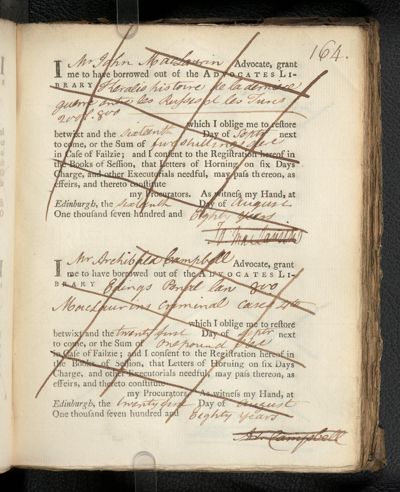 164.
I Mr John MacLaurin Advocate, grant
me to have borrowed out of the ADVOCATES LI-
BRARY Keralis histoire de la derniere
guerre entre les Russes et les Turcs
2 vols. 8vo
which I oblige me to restore
betwixt and the sixteenth Day of Septr next
to come, or the Sum of five shillings
in Case of Failzie; and I consent to the Registration hereof in
the Books of Session, that Letters of Horning on six Days
Charge, and other Executorials needful, may pass thereon, as
effeirs, and thereto constitute
my Procurators. As witness my Hand, at
Edinburgh, the sixteenth Day of August
One thousand seven hundred and Eighty years
Jo MacLaurin
I Mr Archibald Campbell Advocate, grant
me to have borrowed out of the ADVOCATES LI-
BRARY Edings Penal law 8vo
MacLaurins criminal cases 4to
which I oblige me to restore
betwixt and the twenty first Day of Septr next
to come, or the Sum of one pound
in Case of Failzie; and I consent to the Registration hereof in
the Books of Session, that Letters of Horning on six Days
Charge, and other Executorials needful, may pass thereon, as
effeirs, and thereto constitute
my Procurators. As witness my Hand, at
Edinburgh, the twenty first Day of August
One thousand seven hundred and Eighty years
Ar. Campbell